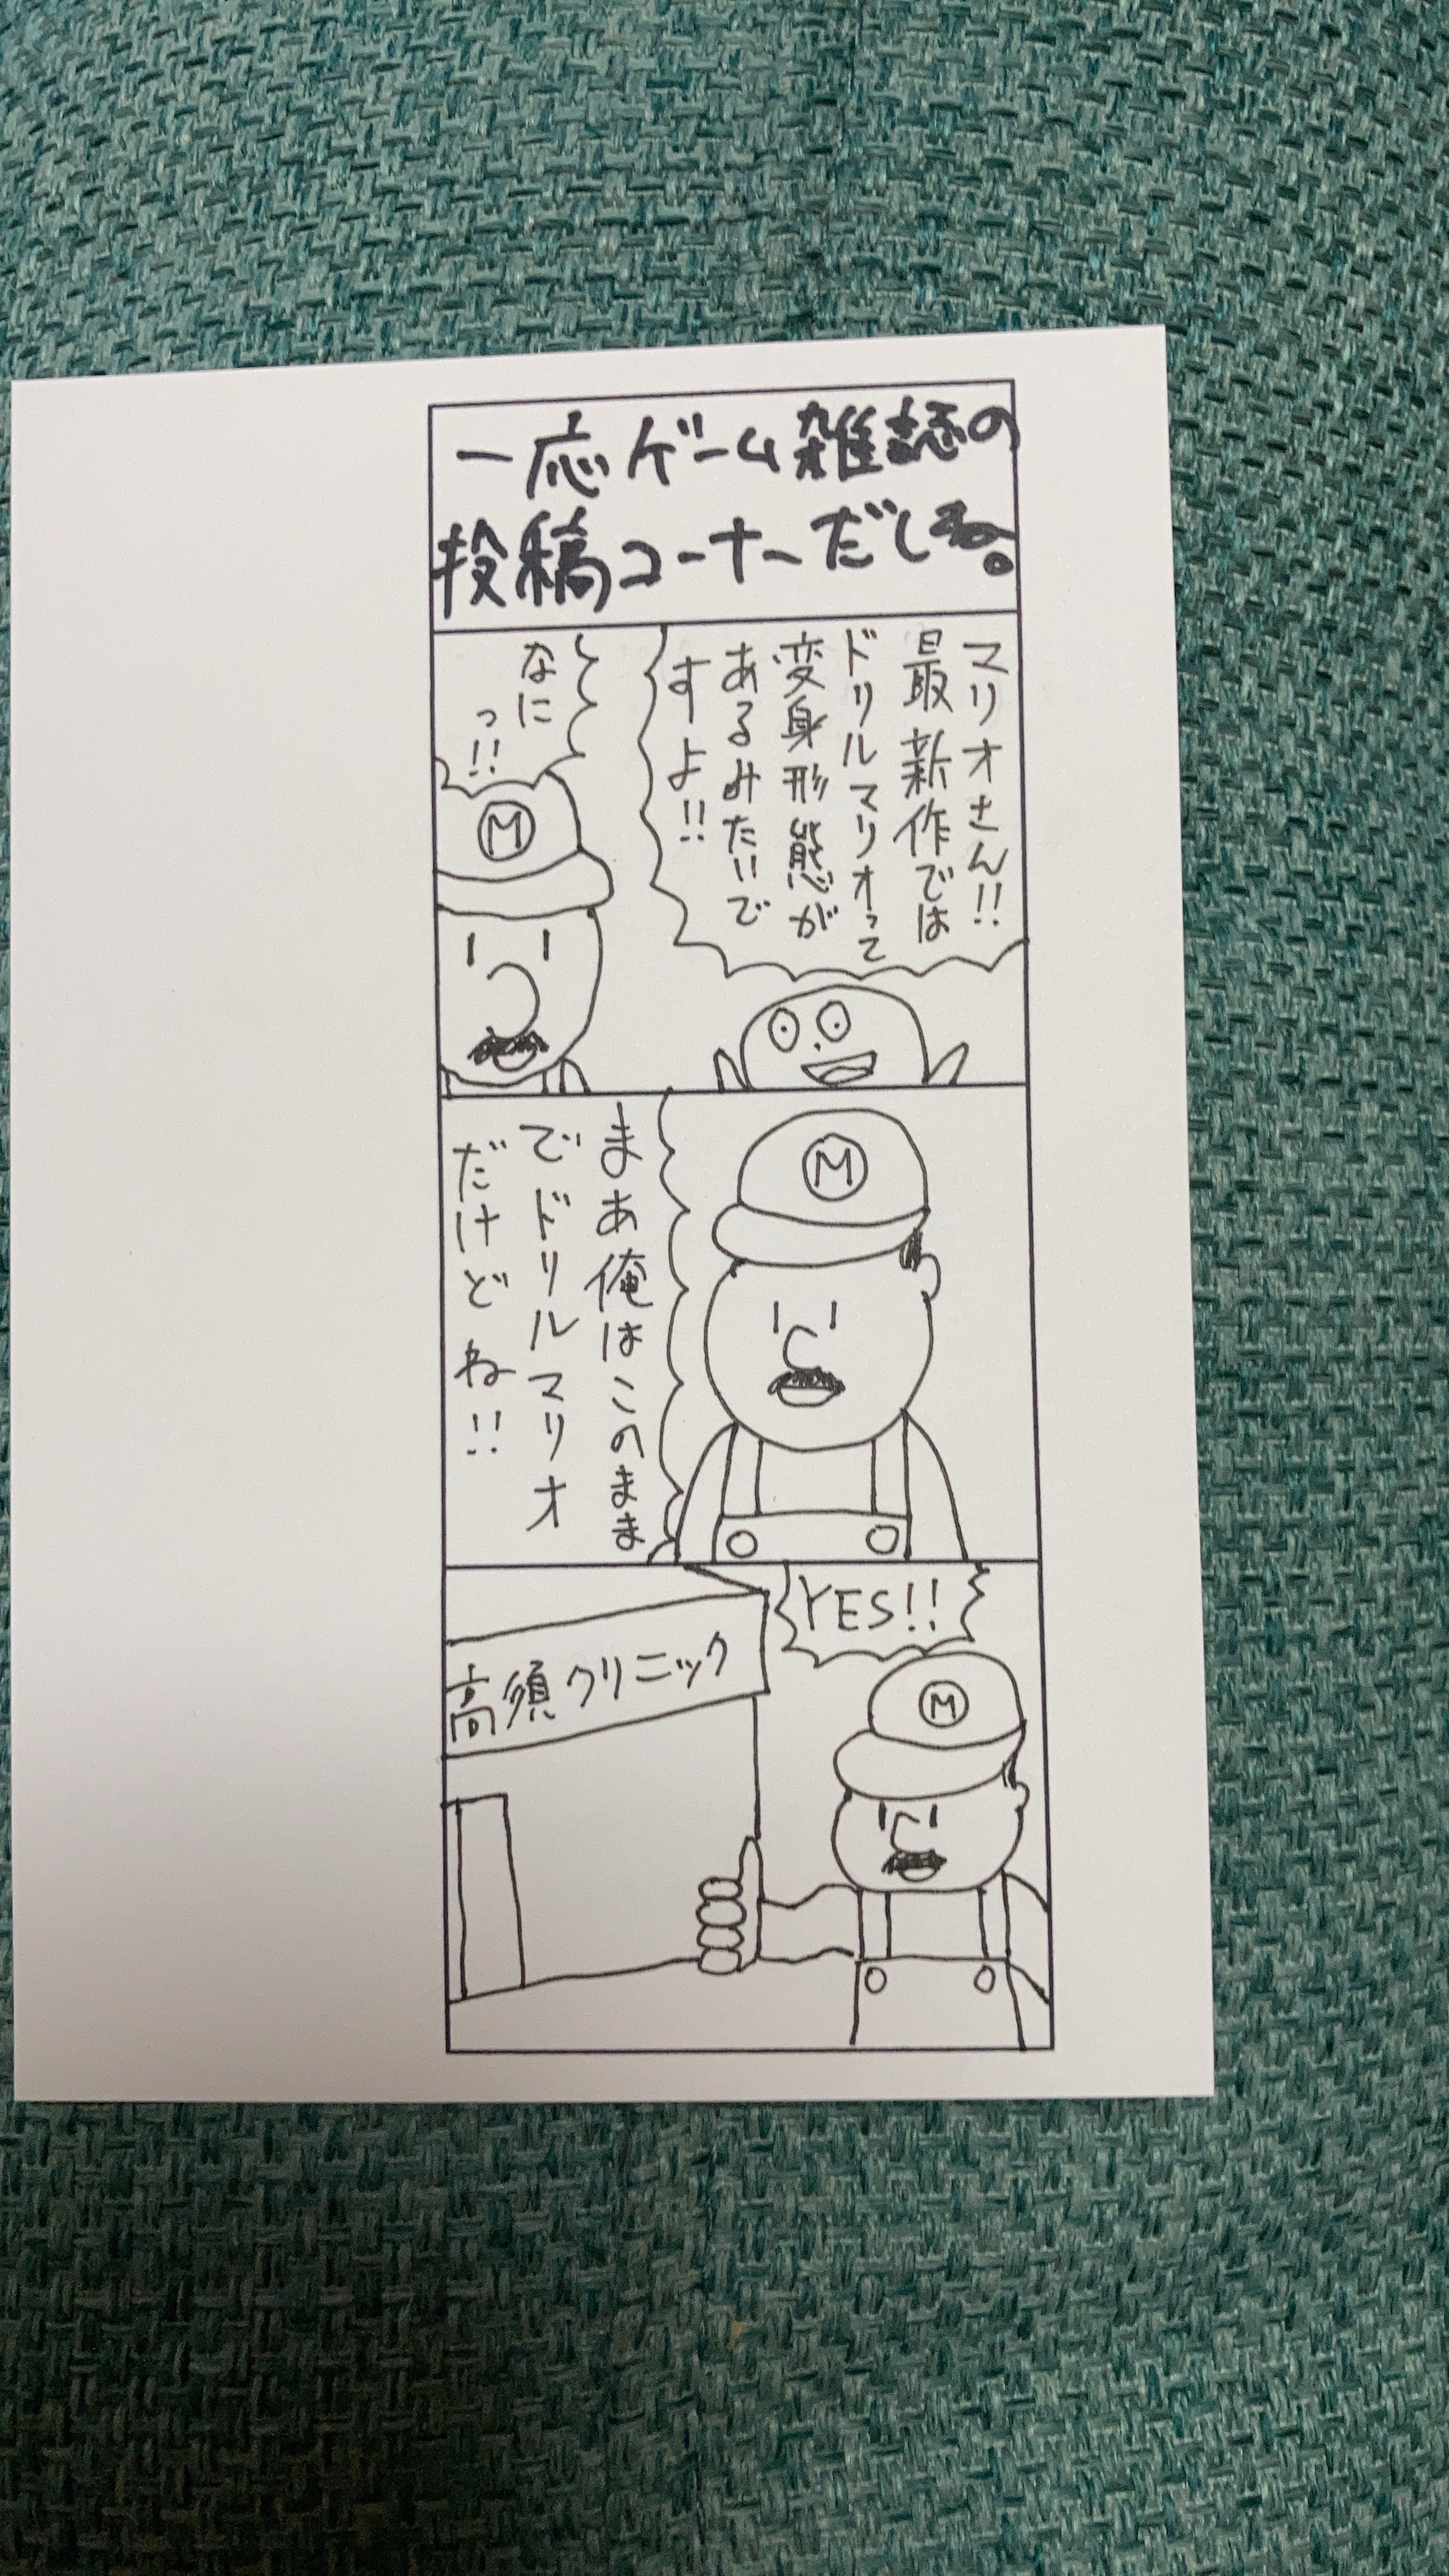 一応ゲーム雑誌の
投稿コーナーだしね。
マリオさん!!
最新作では
ドリルマリオって
変身形態が
あるみたいで
すよ!!
なに
っ!!
M
M
まあ俺はこのまま
でドリルマリオ
だけどね!!
YES!!
M
高須クリニック